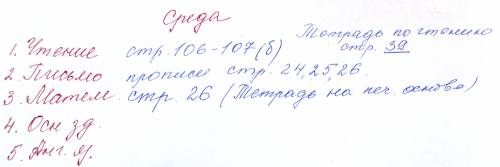 Среда
1. Чтение стр. 106-107 (б) Тетрадь по чтению стр. 39
2. Письмо прописи стр. 24, 25, 26.
3. Матем. стр. 26 (Тетрадь на печ. основе)
4. Осн. зд.
5. Анг. яз.